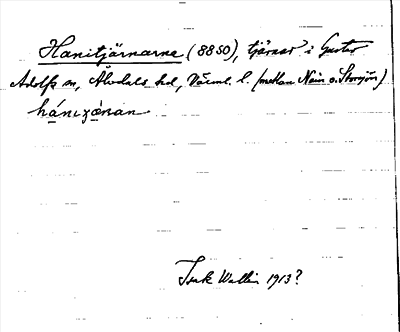 Hanitjärnarna (8850), tjärnar i Gustav
Adolfs sn, Älvdals hd, Värml. l. (mellan Nain o. Storsjön)
hánɩʒǝ́nan
Isak Wallin 1913?